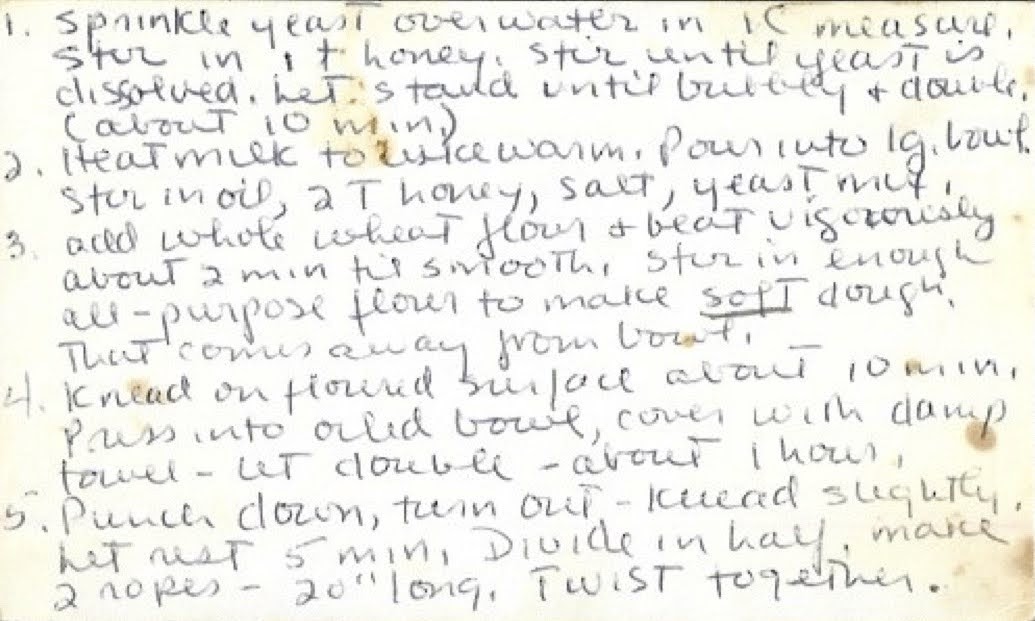 1. Sprinkle yeast over water in 1C measure.
Stir in 1 t honey. Stir until yeast is
dissolved. Let stand until bubbly + double.
(about 10 min.)
2. Heat milk to lukewarm. Pour into lg. bowl.
Stir in oil, 2 T honey, salt, yeast mix.
3. add whole wheat flour + beat vigorously
about 2 min til smooth. Stir in enough
all-purpose flour to make soft dough.
That comes away from bowl.
4. Knead on floured surface about 10 min.
Press into oiled bowl, cover with damp
towel - let double - about 1 hour.
5. Punch down, turn out - knead slightly.
Let rest 5 min. Divide in half. make
2 ropes - 20" long. TWIST together.